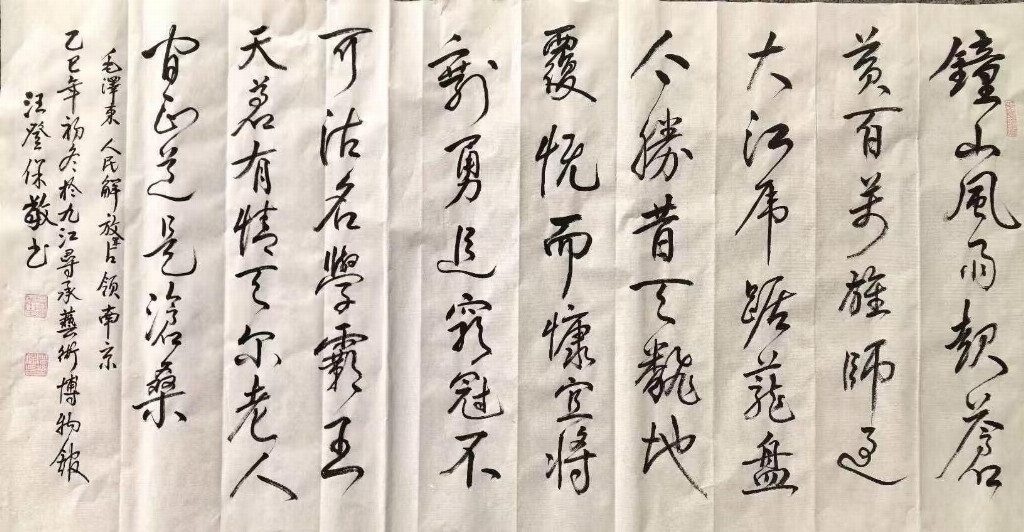 鐘山風雨起蒼
黄百萬雄師過
大江虎踞龍盤
今勝昔天翻地
覆慨而慷宜將
剩勇追窮寇不
可沽名學霸王
天若有情天亦老人
間正道是滄桑
毛澤東 人民解放軍占領南京
乙巳年初冬於九江尋承藝術博物館
汪登保敬书